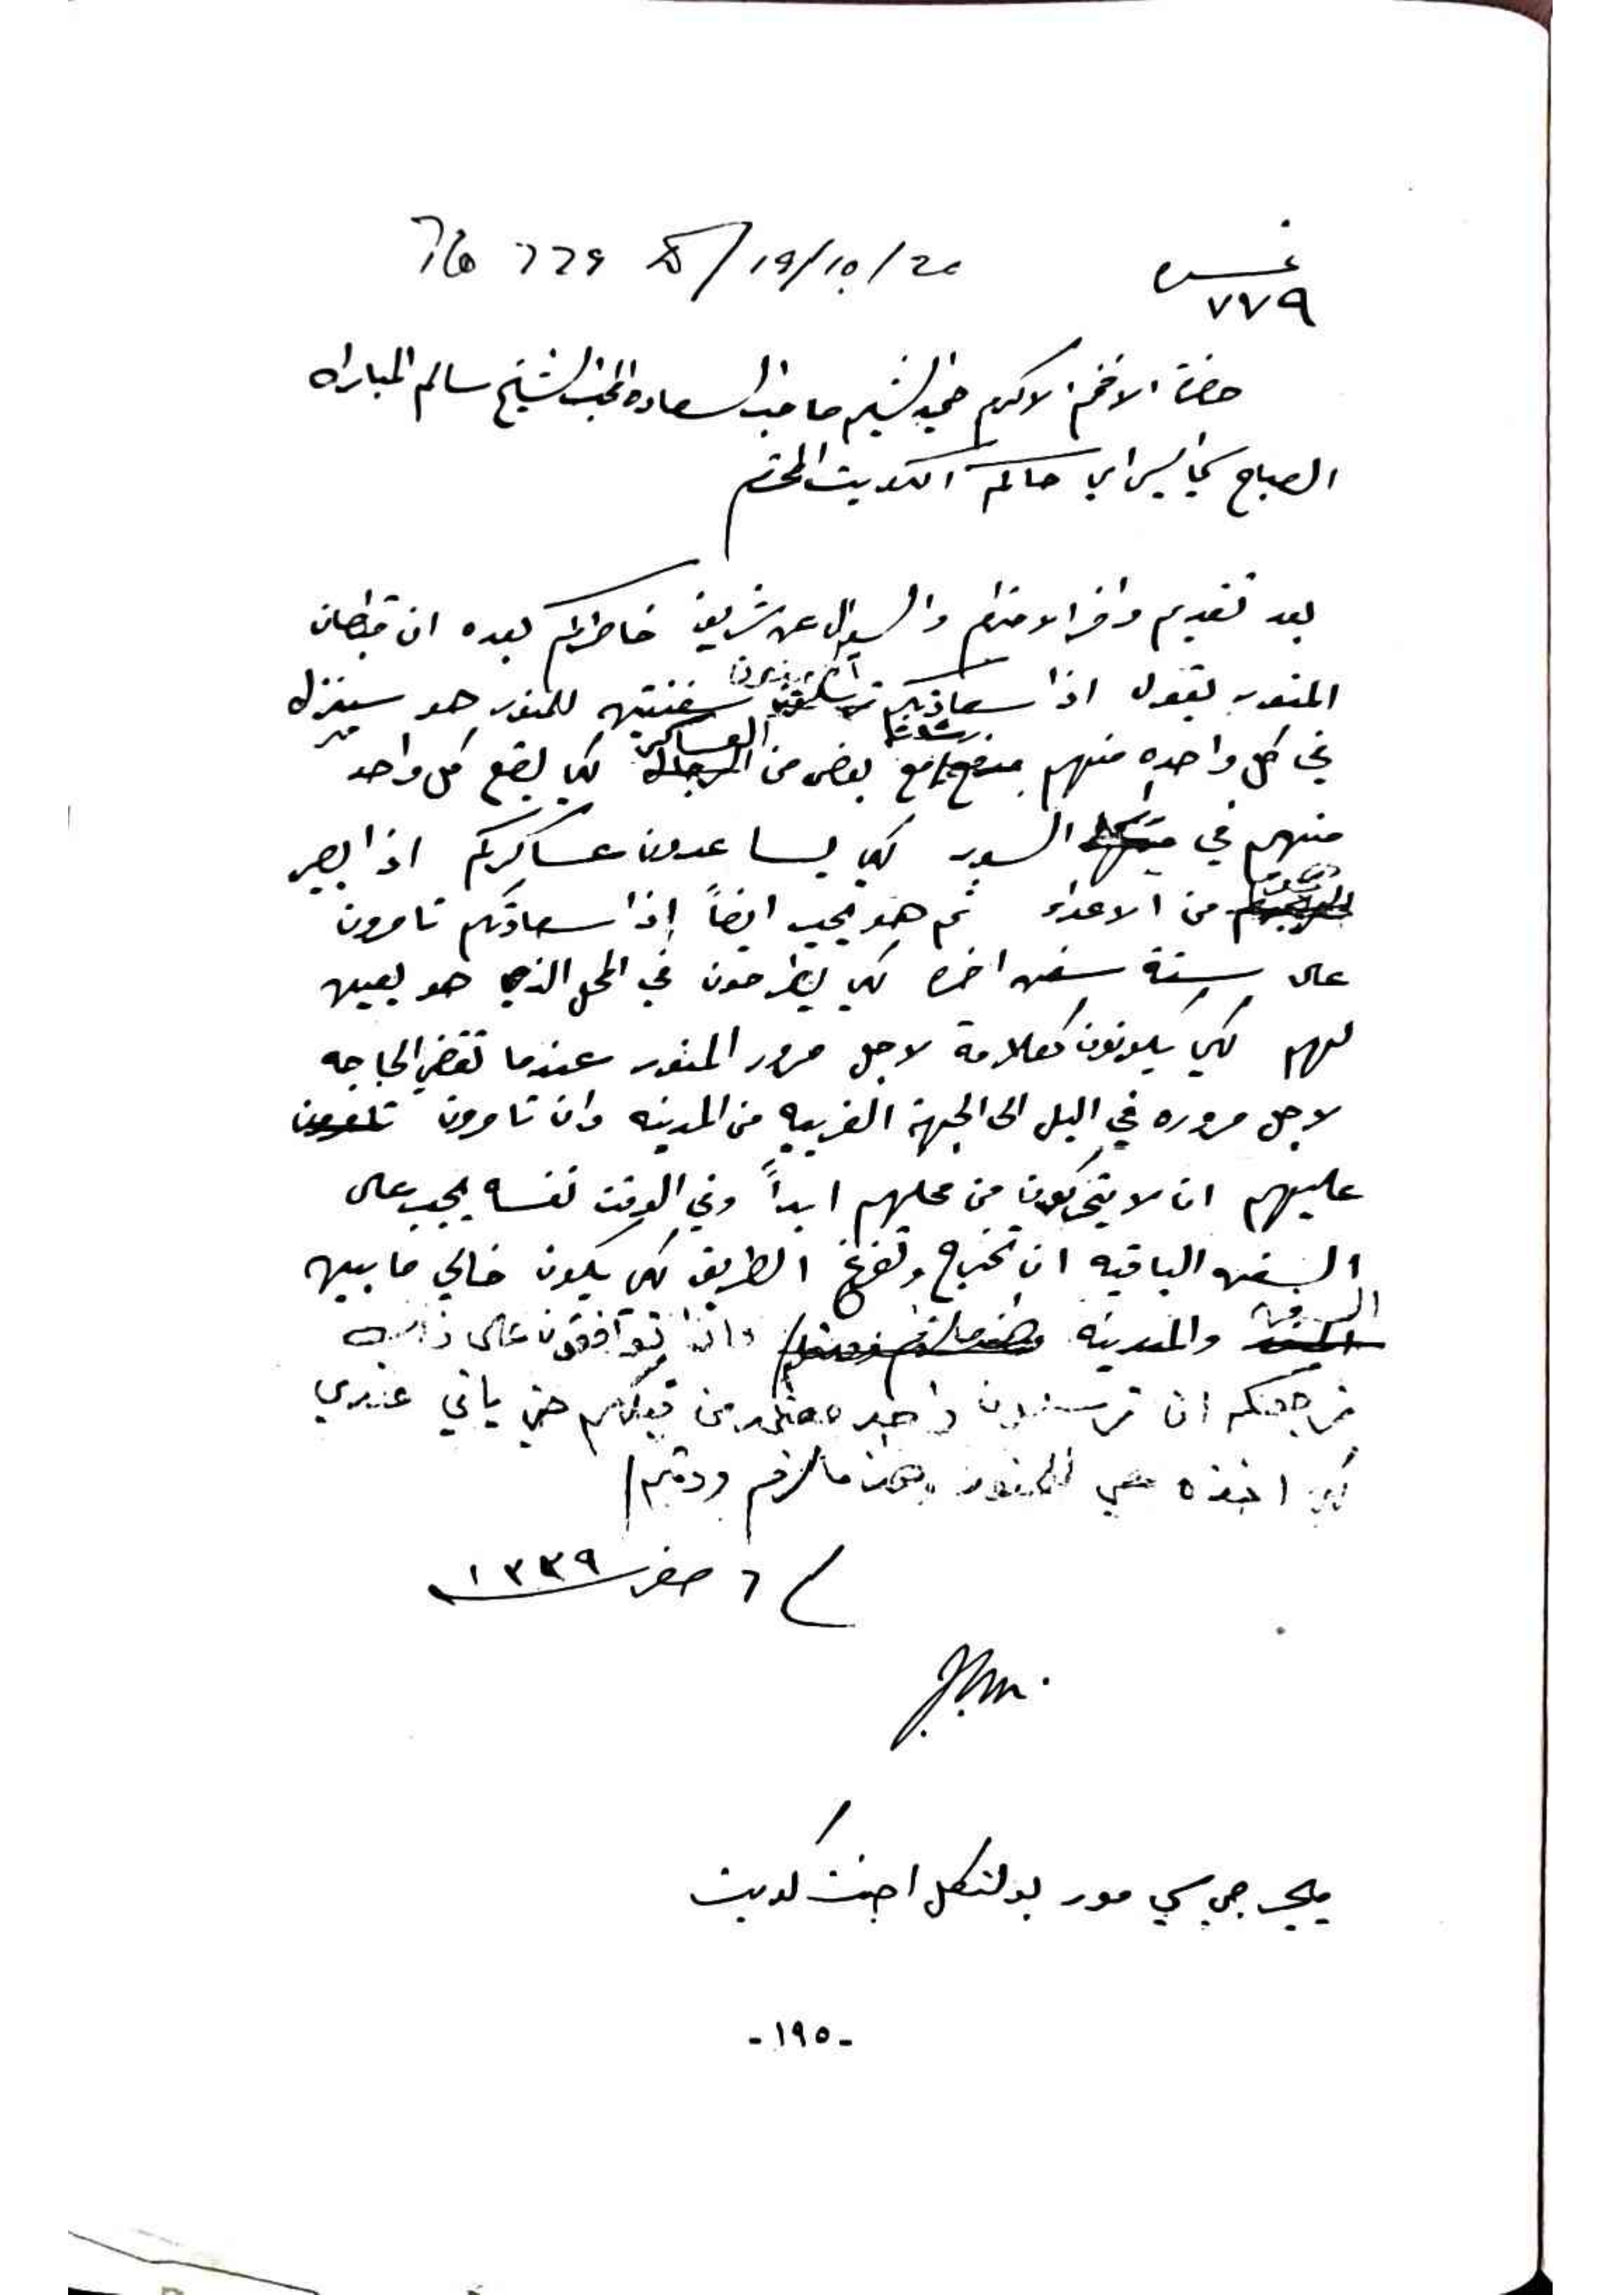 نمره ٧٧٩ 19/10/20 779
حضرة الافخم الاكرم حميد الشيم صاحب السعاده المحب الشيخ سالم المبارك
الصباح سي اي حاكم الكويت المحترم
بعد تقديم وافر الاحترام والسوال عن شريف خاطركم بعده ان قبطان
المنور يقول اذا سعادتكم سفينتين للمنور هو سينزل
في كل واحده منهم رشاشا مع بعض من العساكر لكي يضع كل واحد
منهم في السور لكي يساعدون عساكركم اذا يصير
من الاعداء ثم هو يحب ايضاً إذا سعادتكم تامرون
على ستة سفن اخره لكي يطرحون في المحل الذي هو يعين
لهم لكي يكونون كعلامة لاجل مرور المنور عندما تقضي الحاجه
لاجل مروره في اليل الى الجهة الغربيه من المدينه وان تامرون
عليهم ان لا يتحركون من محلهم ابداً وفي الوقت نفسه يجب على
السفن الباقيه ان تخرج وتفرغ الطريق لكي يكون خالي ما بين
والمدينه واذا توافقون على ذلك
نرجوكم ان ترسلون واحد معتمد من قبلكم حتى ياتي عندي
لكي اخذه معي للمنور هذا ما لزم ودمتم
٦ صفر ١٣٣٩
ميجر جي سي مور بولتكل اجنت كويت
-١٩٥-